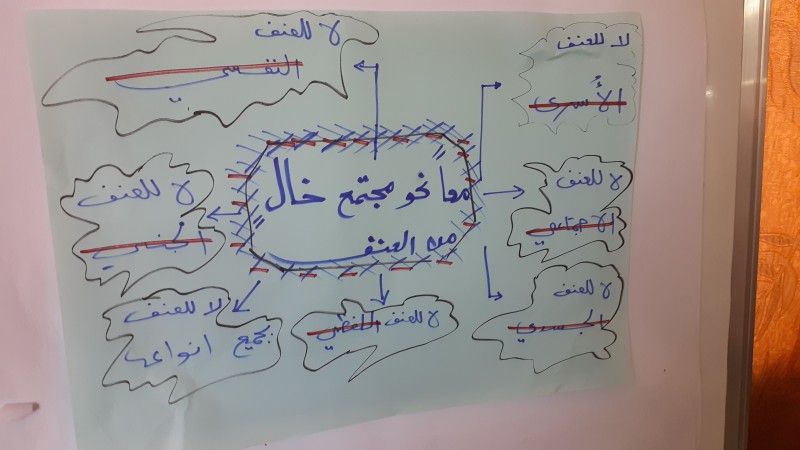 لا للعنف
الأُسرى
لا للعنف
النفسي
معاً نحو مجتمع خالٍ
من العنف
لا للعنف
الاجتماعي
لا للعنف
الجنسي
لا للعنف
الجسدي
لا للعنف اللفظي
لا للعنف
بجميع انواعه